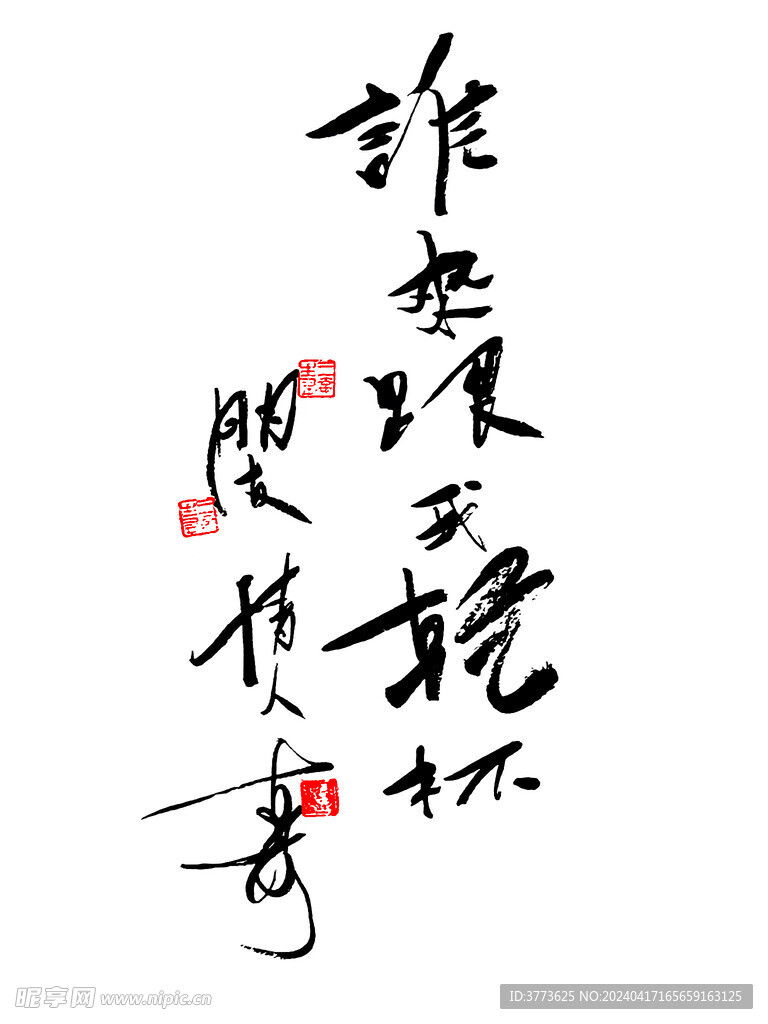 誰想跟我乾杯
朋友情人壽
昵享网 www.nipic.cn
ID:3773625 NO:20240417165659163125